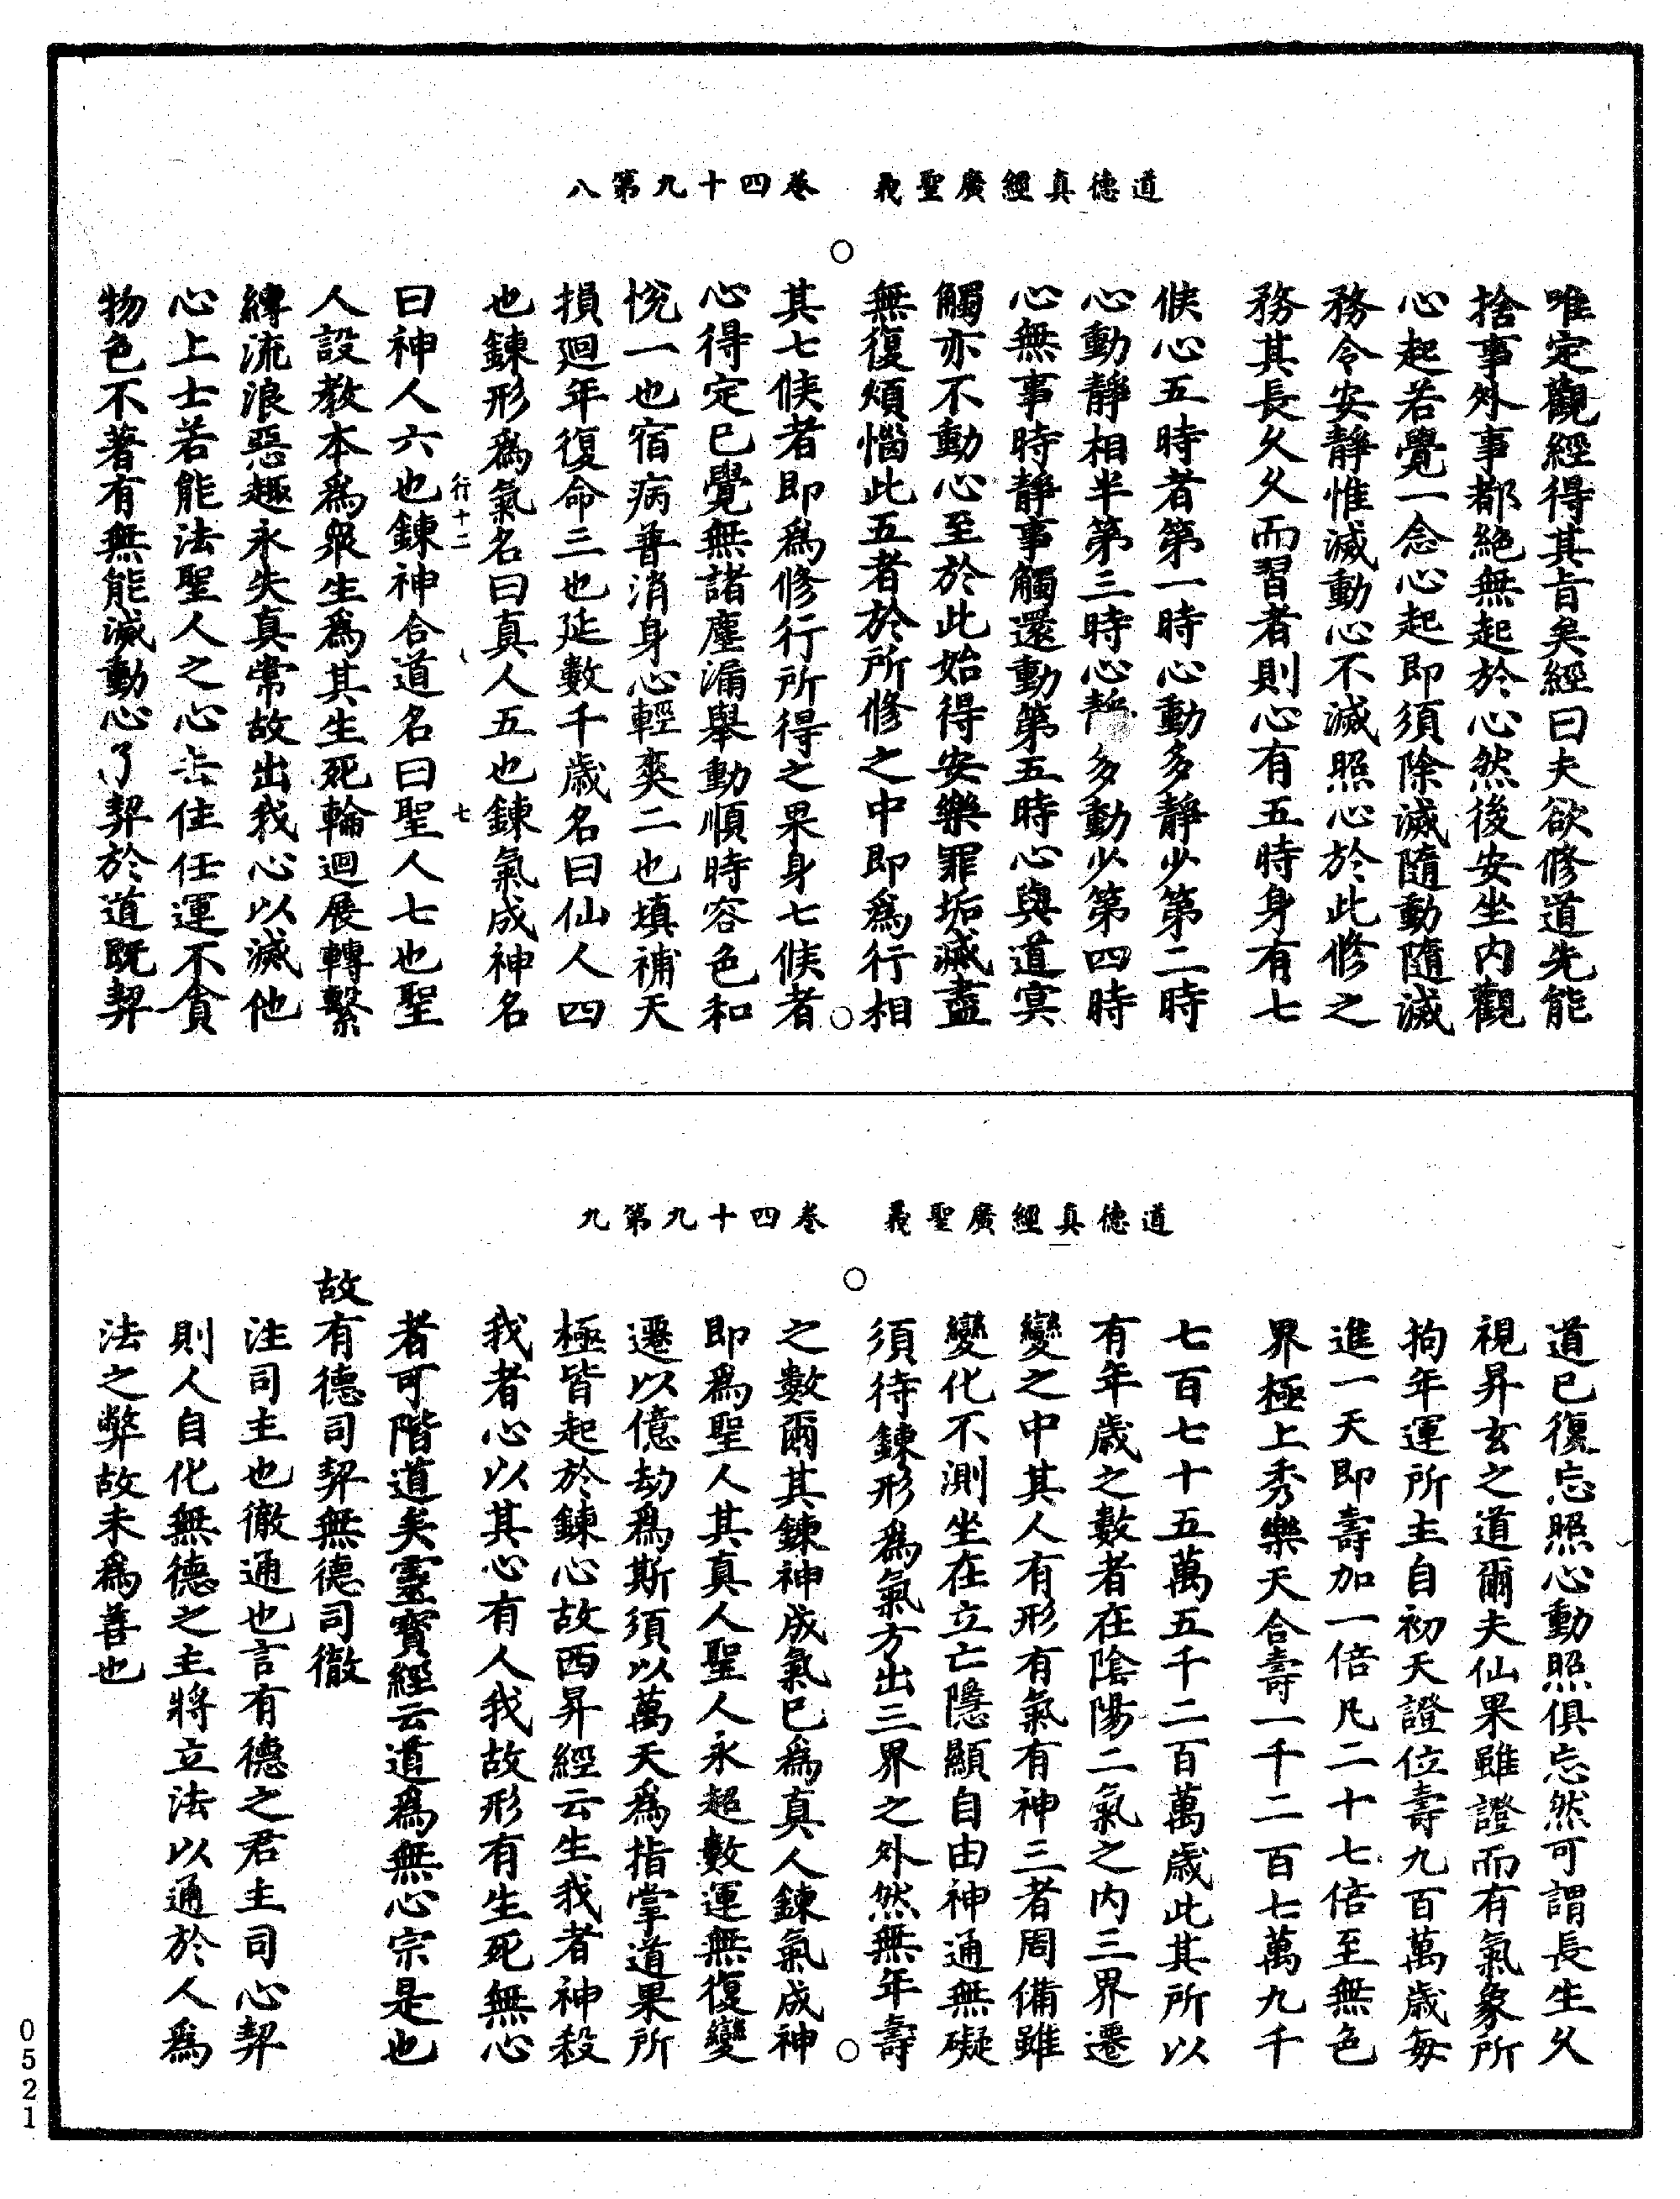 道德真經廣聖義　卷四十九第八
唯定觀經得其旨矣經曰夫欲修道先能
捨事外事都絕無起於心然後安坐內觀
心起若覺一念心起即須除滅隨動隨滅
務令安靜惟滅動心不滅照心於此修之
務其長久久而習者則心有五時身有七
候心五時者第一時心動多靜少第二時
心動靜相半第三時心靜多動少第四時
心無事時靜事觸還動第五時心與道冥
觸亦不動心至於此始得安樂罪垢滅盡
無復煩惱此五者於所修之中即為行相
其七候者即為修行所得之果身七候者
心得定已覺無諸塵漏舉動順時容色和
悅一也宿病普消身心輕爽二也填補天
損迴年復命三也延數千歲名曰仙人四
也鍊形為氣名曰真人五也鍊氣成神名
行十二　七
曰神人六也鍊神合道名曰聖人七也聖
人設教本為眾生為其生死輪迴展轉繫
縛流浪惡趣永失真常故出我心以滅他
心上士若能法聖人之心去住任運不貪
物色不著有無能滅動心了契於道既契
道德真經廣聖義　卷四十九第九
道已復忘照心動照俱忘然可謂長生久
視昇玄之道爾夫仙果雖證而有氣象所
拘年運所主自初天證位壽九百萬歲每
進一天即壽加一倍凡二十七倍至無色
界極上秀樂天合壽一千二百七萬九千
七百七十五萬五千二百萬歲此其所以
有年歲之數者在陰陽二氣之內三界遷
變之中其人有形有氣有神三者周備雖
變化不測坐在立亡隱顯自由神通無礙
須待鍊形為氣方出三界之外然無年壽
之數爾其鍊神成氣已為真人鍊氣成神
即為聖人其真人聖人永超數運無復變
遷以億劫為斯須以萬天為指掌道果所
極皆起於鍊心故西昇經云生我者神殺
我者心以其心有人我故形有生死無心
者可階道矣靈寶經云道為無心宗是也
故有德司契無德司徹
注司主也徹通也言有德之君主司心契
則人自化無德之主將立法以通於人為
法之弊故未為善也
0521